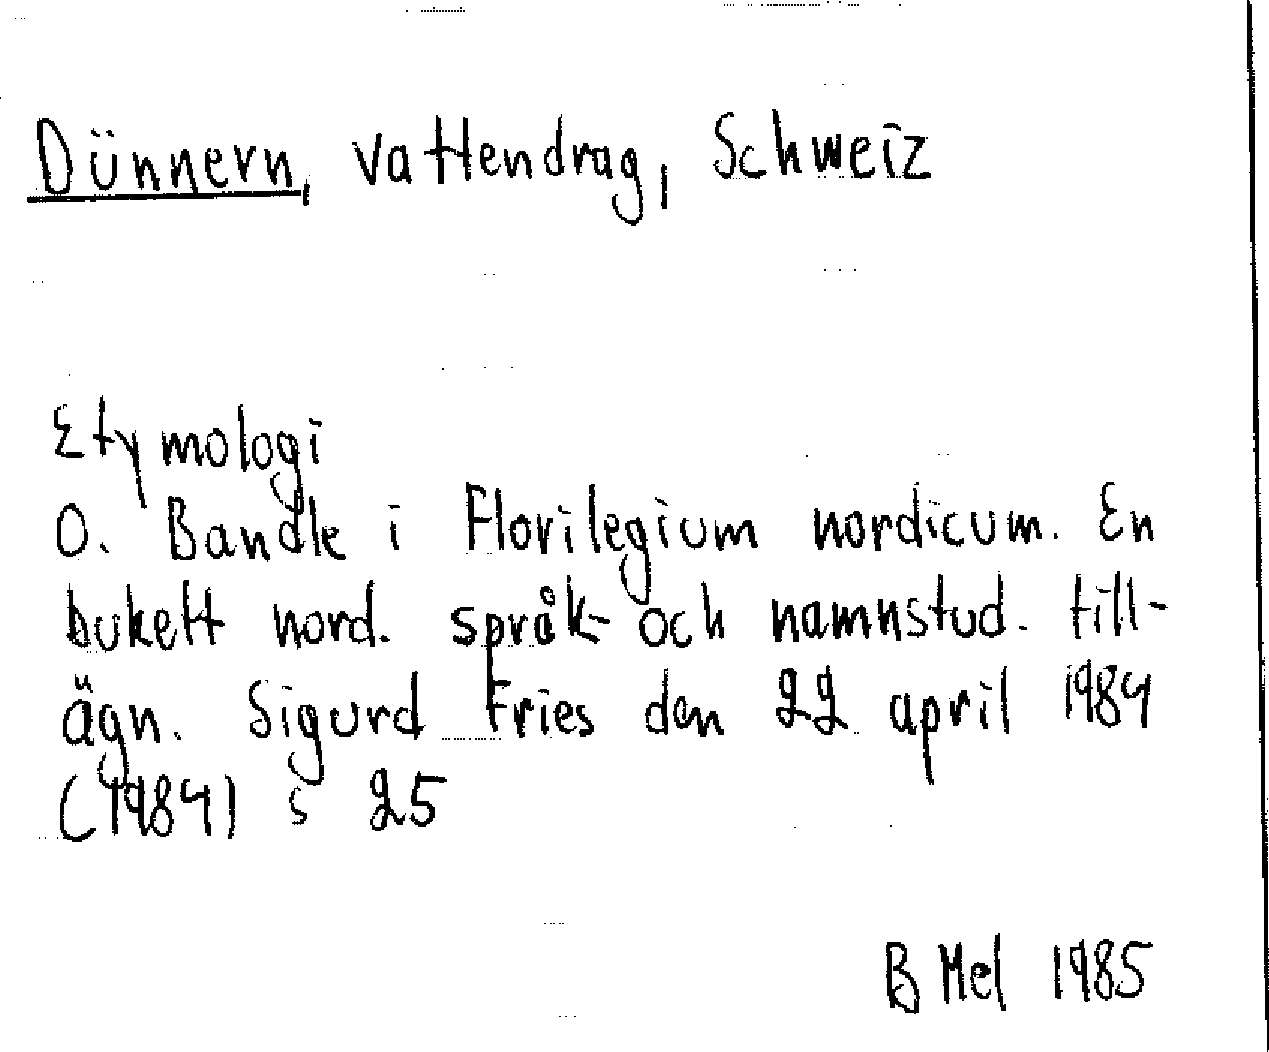 Dünnern, vattendrag, Schweiz
Etymologi
O. Bandle i Florilegium nordicum. En
bukett nord. språk- och namnstud. till-
ägn. Sigurd Fries den 22 april 1984
(1984) s 25
B Mel 1985